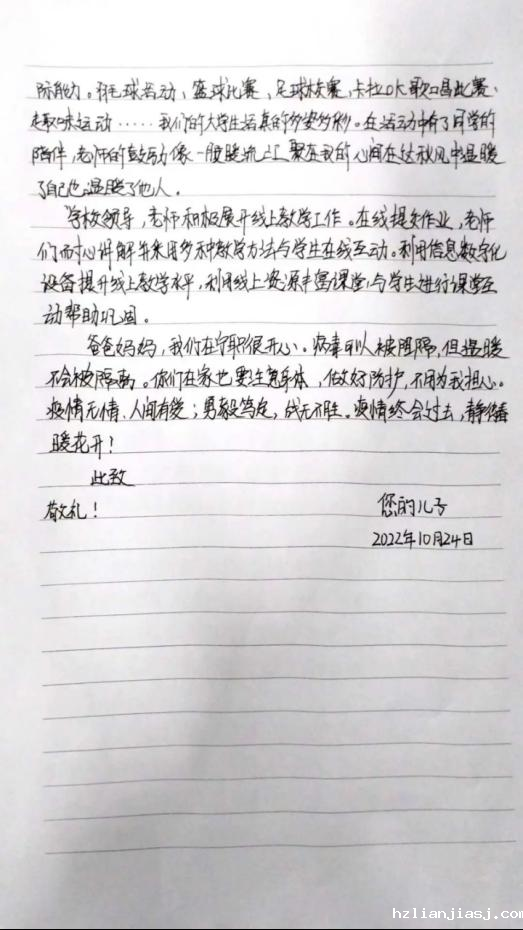 际能力。羽毛球活动、篮球比赛、足球比赛、卡拉OK歌唱比赛、
趣味运动……我们的大学生活真的多姿多彩。在活动中有了同学的
陪伴，老师的鼓励像一股暖流汇聚在我的心间在这秋风中温暖
了自己也温暖了他人。
学校领导，老师积极展开线上教学工作。在线提交作业，老师
们耐心讲解并采用多种教学方法与学生在线互动。利用信息数字化
设备提升线上教学水平，利用线上资源丰富课堂，与学生进行课堂互
动帮助巩固。
爸爸妈妈，我们在宁职很开心。病毒可以被阻隔，但温暖
不会被隔离。你们在家也要注意身体，做好防护，不用为我担心。
疫情无情、人间有爱；勇毅笃定，战无不胜。疫情终会过去，静待春
暖花开！
此致
敬礼！
您的儿子
2022年10月24日
hzlianjiasj.com